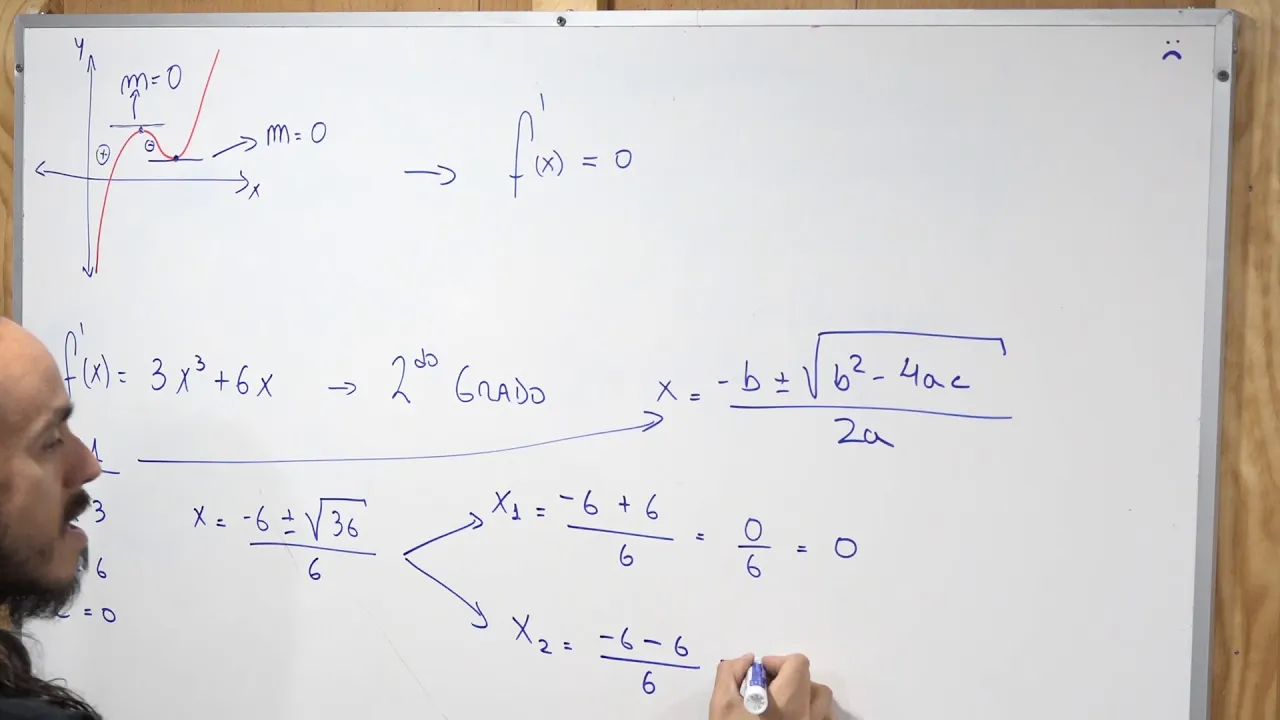 y
m=0
m=0
⊕
⊖
x
→ f'(x) = 0
f'(x) = 3x³+6x → 2do GRADO
x = -b ± √b²-4ac / 2a
1
3
6
=0
x = -6 ± √36 / 6
x₁ = -6 + 6 / 6 = 0/6 = 0
x₂ = -6 - 6 / 6